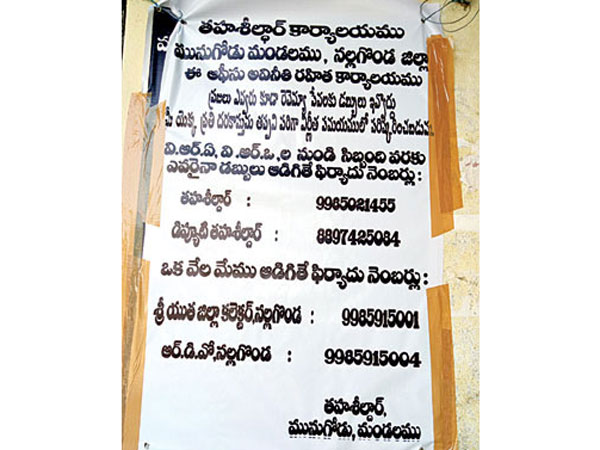 తహశీల్దార్ కార్యాలయము
మునుగోడు మండలము, నల్లగొండ జిల్లా
ఈ ఆఫీసు అవినీతి రహిత కార్యాలయము
ప్రజలు ఎవ్వరు కూడా రెవెన్యూ సేవలకు డబ్బులు ఇవ్వొద్దు
మీ యొక్క ప్రతి దరఖాస్తును తప్పని సరిగా నిర్ణీత సమయములో పరిష్కరించబడును.
వి.ఆర్.ఏ, వి.ఆర్.ఒ,ల నుండి సిబ్బంది వరకు
ఎవరైనా డబ్బులు ఆడిగితే ఫిర్యాదు నెంబర్లు :
తహశీల్దార్ : 9985021455
డిప్యూటీ తహశీల్దార్ : 8897425084
ఒక వేల మేము ఆడిగితే ఫిర్యాదు నెంబర్లు :
శ్రీ యుత జిల్లా కలెక్టర్,నల్లగొండ : 9985915001
ఆర్.డి.వో,నల్లగొండ : 9985915004
తహశీల్దార్,
మునుగోడు, మండలము